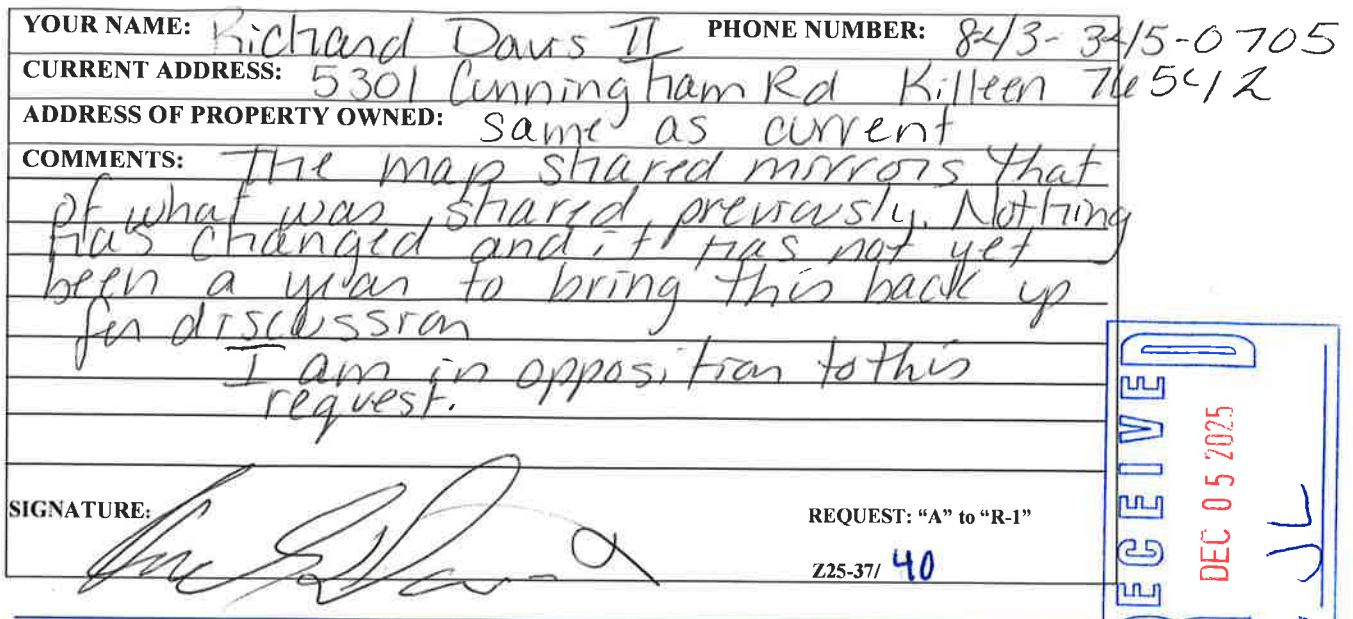 YOUR NAME: Richard Davis II PHONE NUMBER: 843-345-0705
CURRENT ADDRESS: 5301 Cunningham Rd Killeen 76542
ADDRESS OF PROPERTY OWNED: same as current
COMMENTS: The map shared mirrors that
of what was shared previously. Nothing
has changed and it has not yet
been a year to bring this back up
for discussion
I am in opposition to this
request.
SIGNATURE:
REQUEST: "A" to "R-1"
Z25-37/ 40
RECEIVED
DEC 05 2025
JL